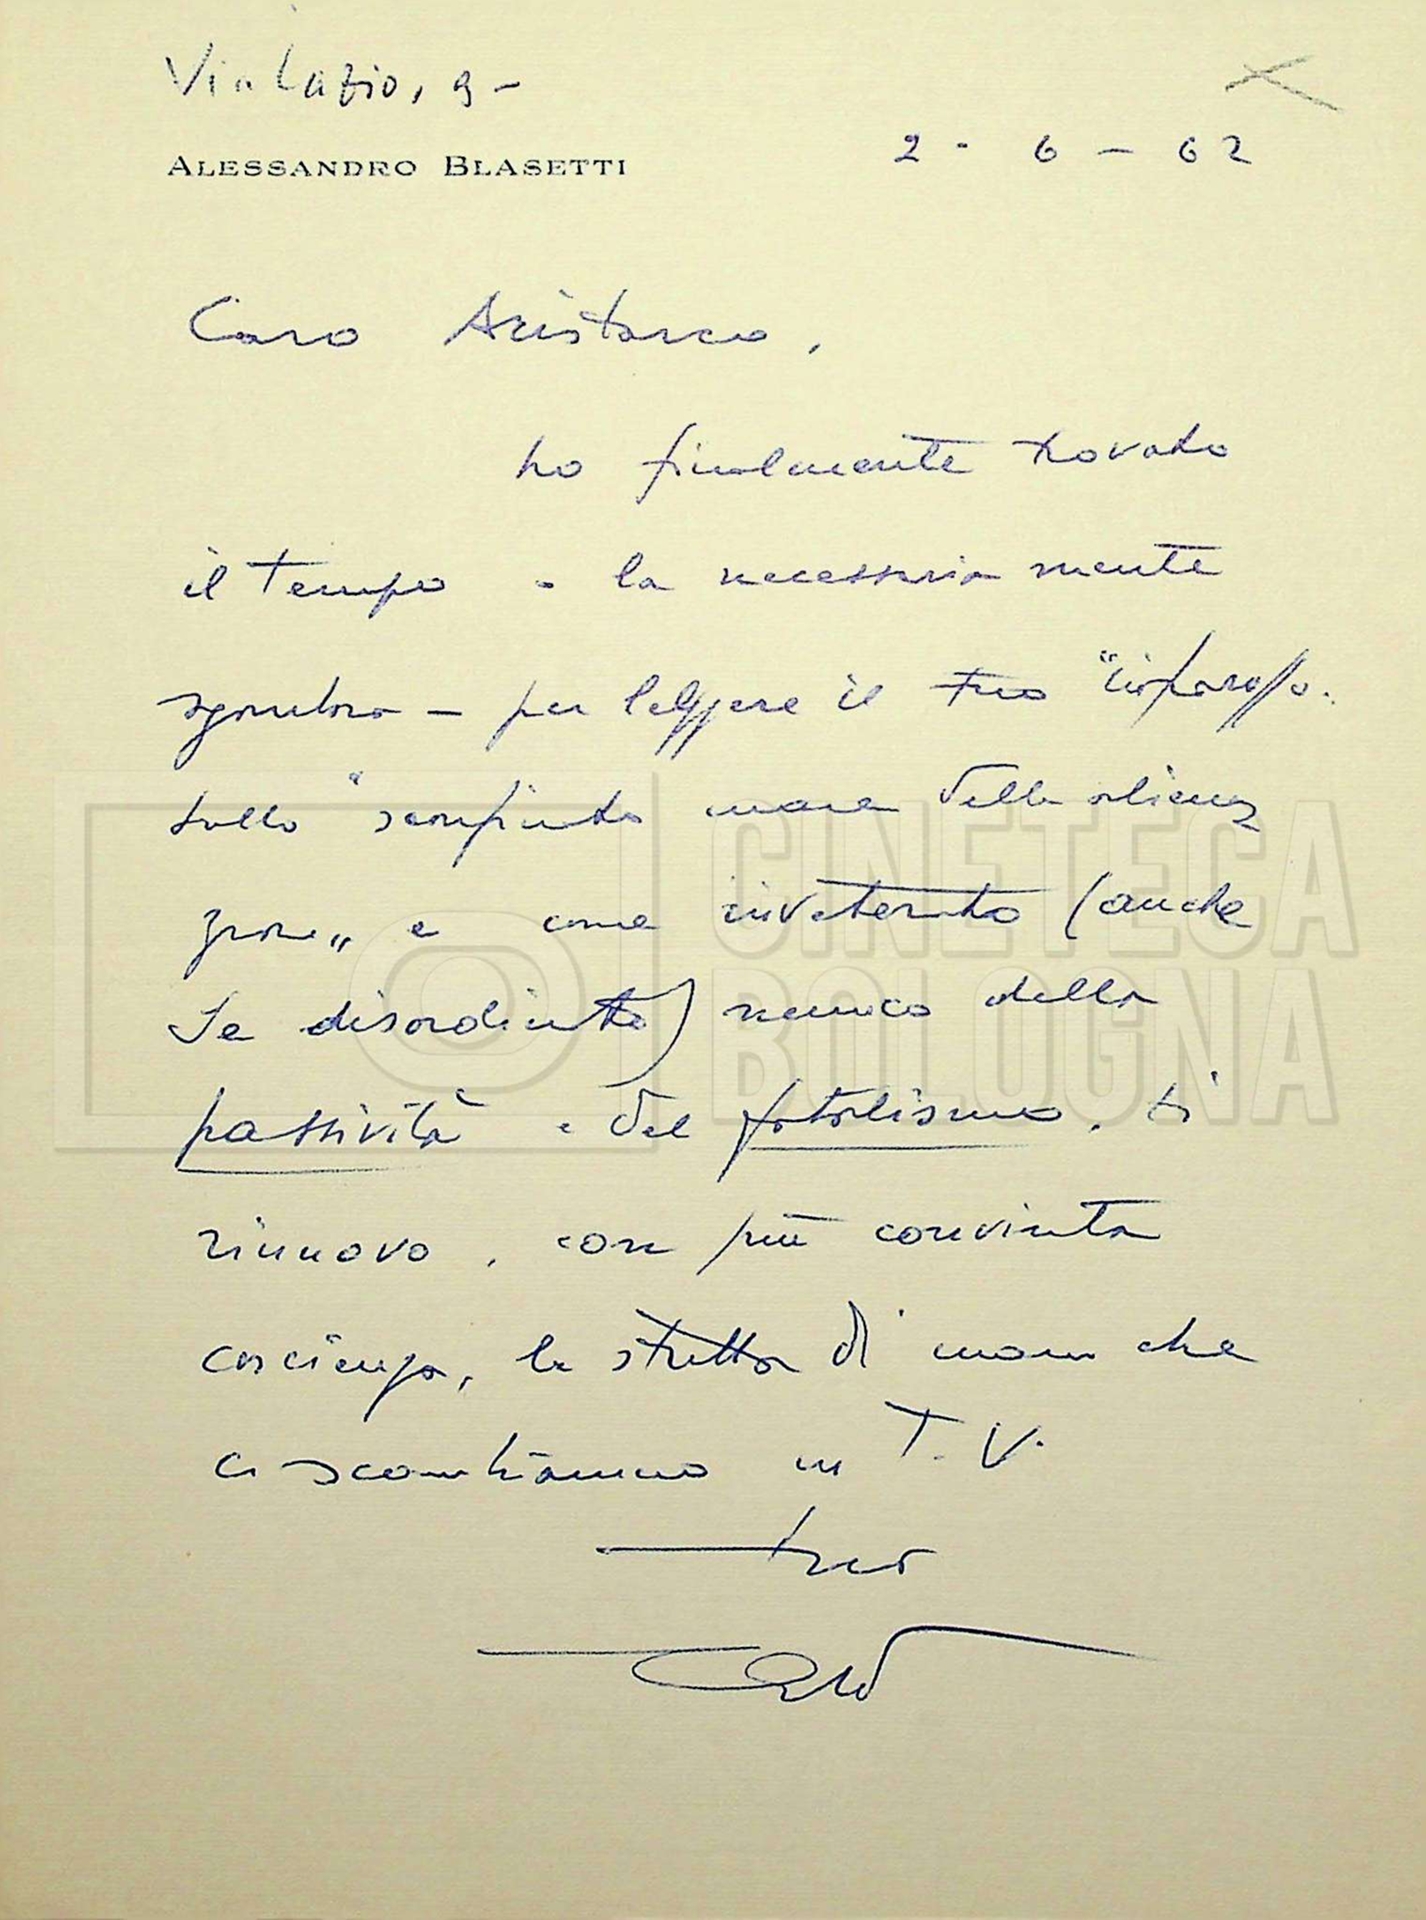 Via Lazio, 9 -
ALESSANDRO BLASETTI
2 - 6 - 62
Caro Aristarco,
ho finalmente trovato
il tempo - la necessaria mente
sgombra - per leggere il tuo
sullo sconfinato mare della aliena
zione„ e come inveterato (anche
se disordinato) nemico della
passività e del fatalismo, ti
rinnovo, con più convinta
coscienza, la stretta di mano che
ci scambiammo in T.V.
tuo
CINETECA
BOLOGNA